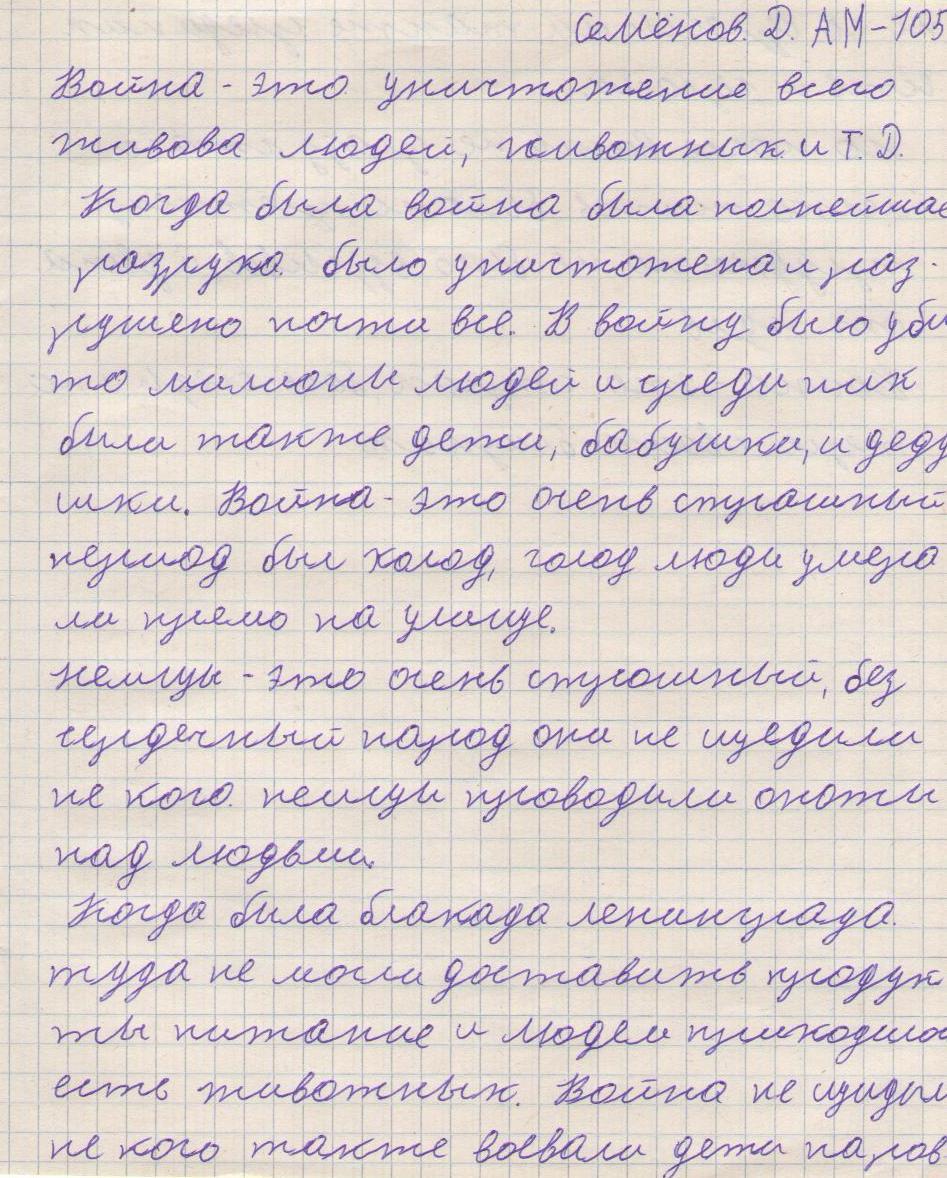 Семёнов. Д. АМ-105
Война - это уничтожение всего
живова людей, животных и Т. Д.
Когда была война была полнейшае
разруха. было уничтожена и раз-
рушено почти все. В войну было уби
то милионы людей и среди них
были также дети, бабушки, и деду
шки. Война - это очень страшный
период был холод, голод люди умера
ли прямо на улице.
Немцы - это очень страшный, без
сердечный народ они не щедили
не кого. немцы проводили опоты
над людьми.
Когда была блакада ленинграда.
туда не могли доставить продук
ты питание и людем приходилос
есть животных. Война не щидил
не кого также воевали дети наров